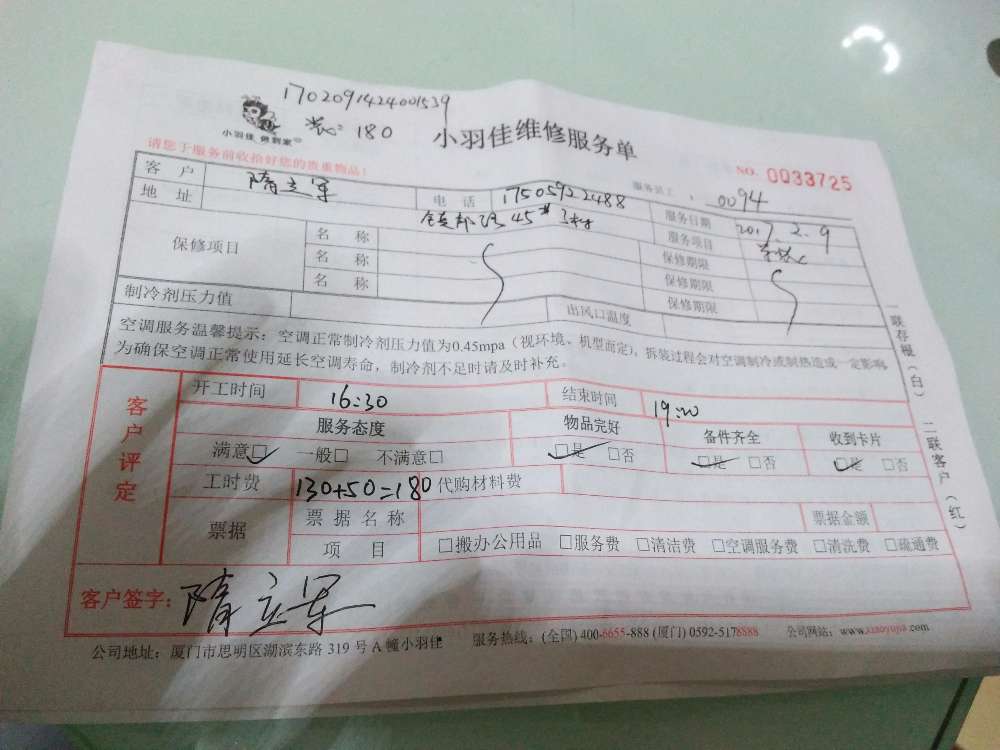 1702091424001539
180
小羽佳 做到家
小羽佳维修服务单
请您于服务前收拾好您的贵重物品!
NO. 0033725
服务员工: 0094
客户 隋立军 电话 17505922488 服务日期 2017.2.9
地址 45# 服务项目
保修项目 名称 保修期限
名称 保修期限
名称 保修期限
制冷剂压力值 出风口温度
空调服务温馨提示:空调正常制冷剂压力值为0.45mpa(视环境、机型而定),拆装过程会对空调制冷或制热造成一定影响
为确保空调正常使用延长空调寿命,制冷剂不足时请及时补充。
客户评定
开工时间 16:30 结束时间 19:20
服务态度 物品完好 备件齐全 收到卡片
满意□ 一般□ 不满意□ □是 □否 □是 □否 □是 □否
工时费 130+50=180 代购材料费
票据 票据名称 票据金额
项目 □搬办公用品 □服务费 □清洁费 □空调服务费 □清洗费 □疏通费
客户签字: 隋立军
一联存根(白) 二联客户(红)
公司地址:厦门市思明区湖滨东路319号A幢小羽佳 服务热线:(全国)400-6655-888 (厦门)0592-5178888 公司网站:www.xiaoyujia.com